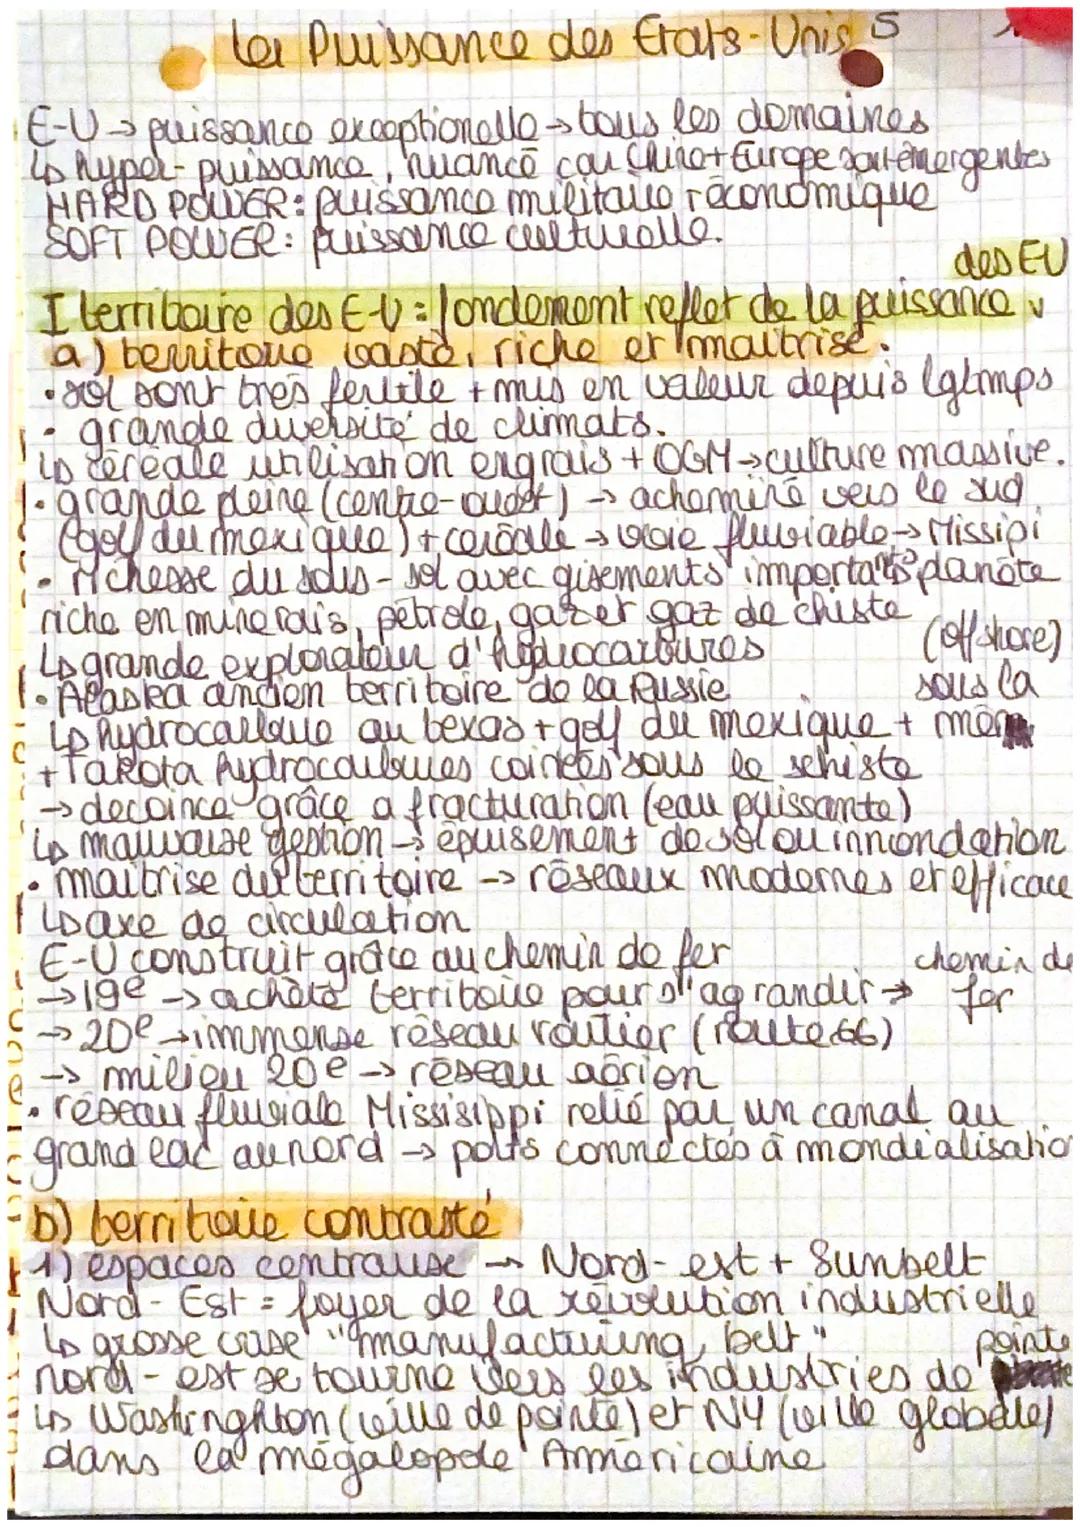 la Puissance des Etats-Unis S
E-U → puissance exceptionelle → tous les domaines
↳ hyper-puissance, nuancé car Chine + Europe sont émergentes
HARD POWER: puissance militaire, économique
SOFT POWER: puissance culturelle.
des EU
I territoire des E-U : fondement reflet de la puissance
a) territoire vaste, riche et maitrisé.
• sol sont très fertile + mis en valeur depuis lgtmps
• grande diversité de climats.
↳ céréale utilisation engrais + OGM → culture massive.
• grande pleine (centre-ouest) → acheminé vers le sud
(golf du mexique) + céréale → voie fluviable → Missipi
• richesse du sous-sol avec gisements importants planète
riche en minerais, pétrole, gaz et gaz de chiste
↳ grande explorateur d'hydrocarbures (offshore)
• Alaska ancien territoire de la Russie sous la
↳ hydrocarbure au texas + golf du mexique + mer
+ Takota hydrocarbures coincées sous le schiste
→ decoince grâce a fracturation (eau puissante)
↳ mauvaise gestion → épuisement de sol ou innondation
• maitrise du territoire → réseaux modernes et efficace
↳ axe de circulation
E-U construit grâce au chemin de fer chemin de
→ 19e → achète territoire pour s'agrandir → fer
→ 20e → immense réseau routier (route 66)
→ milieu 20e → réseau aérien
• réseau fluviale Mississippi relié par un canal au
grand lac au nord → ports connectés à mondialisatio
b) territoire contrasté
1) espaces centrause → Nord-est + Sunbelt
Nord-Est = foyer de la révolution industrielle
↳ grosse crise "manufacturing belt" pointe
nord-est se tourne vers les industries de
↳ Washinghton (ville de pointe) et NY (ville globale)
dans la mégalopole Américaine